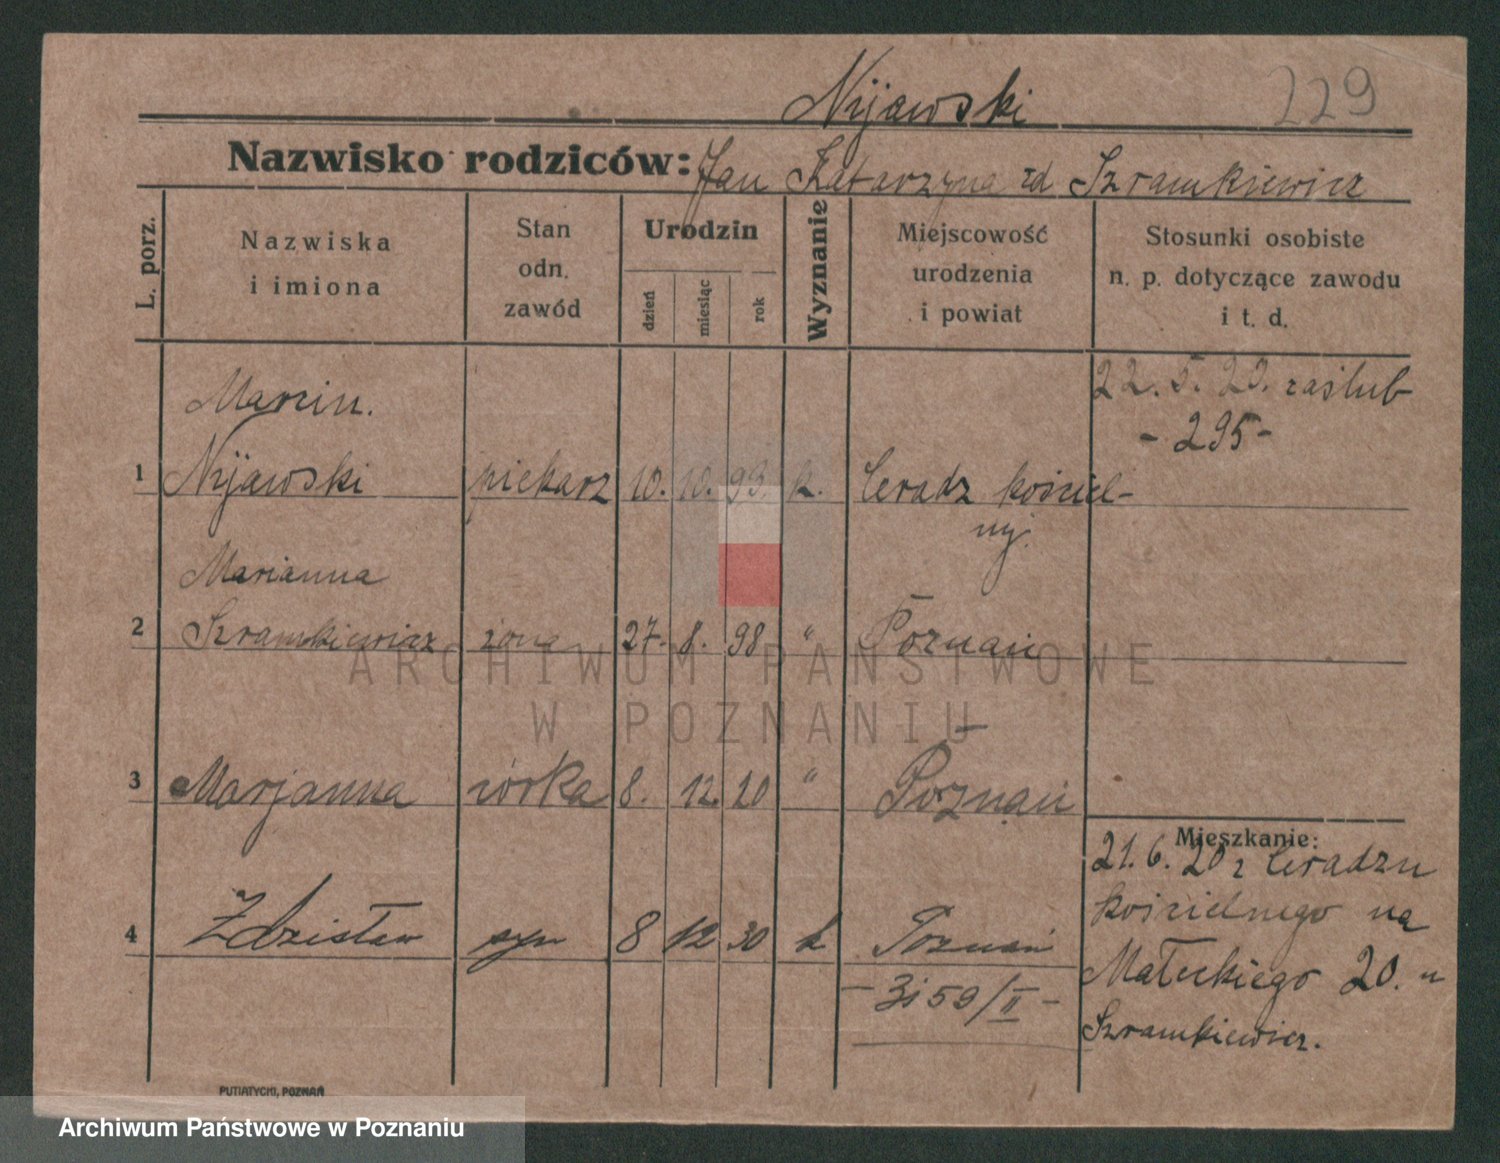 Nijawski 229
Nazwisko rodziców: Jan Katarzyna zd Szramkiewicz
L. porz.
Nazwiska
i imiona
Stan
odn.
zawód
Urodzin
dzień
miesiąc
rok
Wyznanie
Miejscowość
urodzenia
i powiat
Stosunki osobiste
n. p. dotyczące zawodu
i t. d.
22. 5. 20. zaślub
- 295 -
Marcin.
1 Nijawski piekarz 10. 10. 93. k. Ceradz kościel-
ny.
Marianna
2 Szramkiewicz żona 27. 8. 98 " Poznań
3 Marjanna córka 8. 12. 20 " Poznań
4 Zdzisław syn 8 12 30 k Poznań
- 3i 59/II -
Mieszkanie:
21. 6. 20 z Ceradzu
kościelnego na
Małeckiego 20. u
Szramkiewicz.
PUTIATYCKI, POZNAŃ
ARCHIWUM PAŃSTWOWE
W POZNANIU
Archiwum Państwowe w Poznaniu